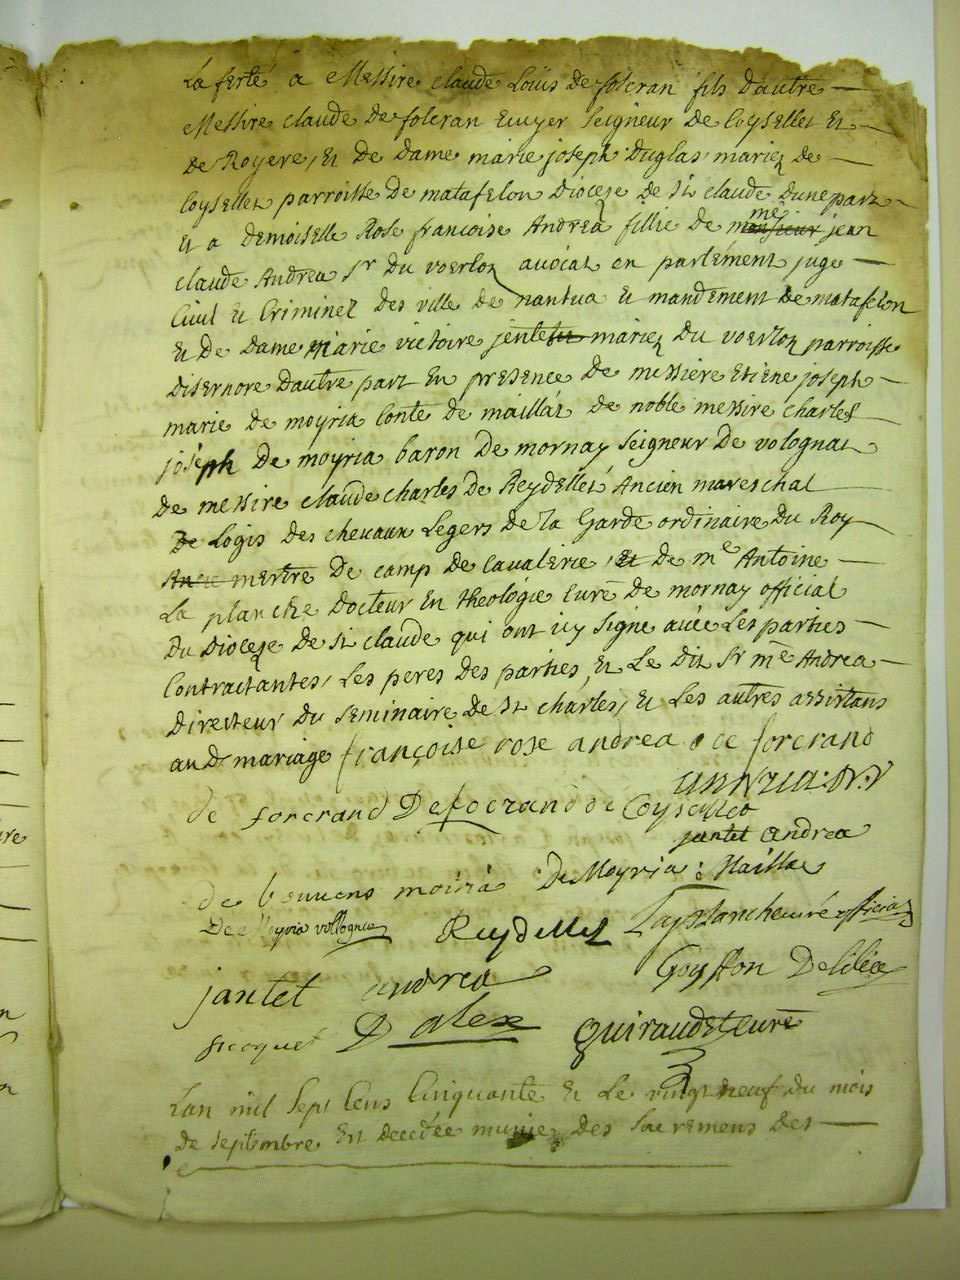 La ferté a Messire claude Loüis de folcran fils d'autre
Messire claude de folcran Ecuyer Seigneur de Coyselles Et
de Royere, Et de dame marie joseph duglas mariez de
Coysellet parroisse de matafelon diocèze de st claude dune part
Et a demoiselle Rose francoise Andréa fillie de monsieur me jean
claude Andrea sr du voerloz avocat en parlément juge
Civil Et Criminel des ville de nantua Et mandément de matafelon
Et de dame marie victoire jentet mariez du voerloz parroisse
disernore dautre part En presence de messiere Etiene joseph
marie de moyria Conte de maillat de noble messire charles
joseph de moyria baron de mornay Seigneur de volognat
de messire claude charles de Reydellet Ancien mareschal
de Logis des chevaux Legers de la Garde ordinaire du Roy
mertre de camp de cavalerie, Et de me Antoine
La planche docteur En théologie curé de mornay official
du diocèze de st claude qui ont icy signé avec Les parties
Contractantes, Les peres des parties, Et Le dit sr me Andréa
directeur du seminaire de st charles, Et Les autres assistans
au d mariage françoise rose andrea de forcrand
de forcrand De forcrand de Coysellet
jantet andrea
de bouvens moiria De Moyria : Maillac
De Moyria vollognia Reydellet Laplanche curé official
jantet andrea Goyffon Delilia
Jicoquet D alex Quiraudet curé
Lan mil Sept Cens Cinquante Et Le vingt neuf du mois
de septembre Est decedée munie des sacremens des